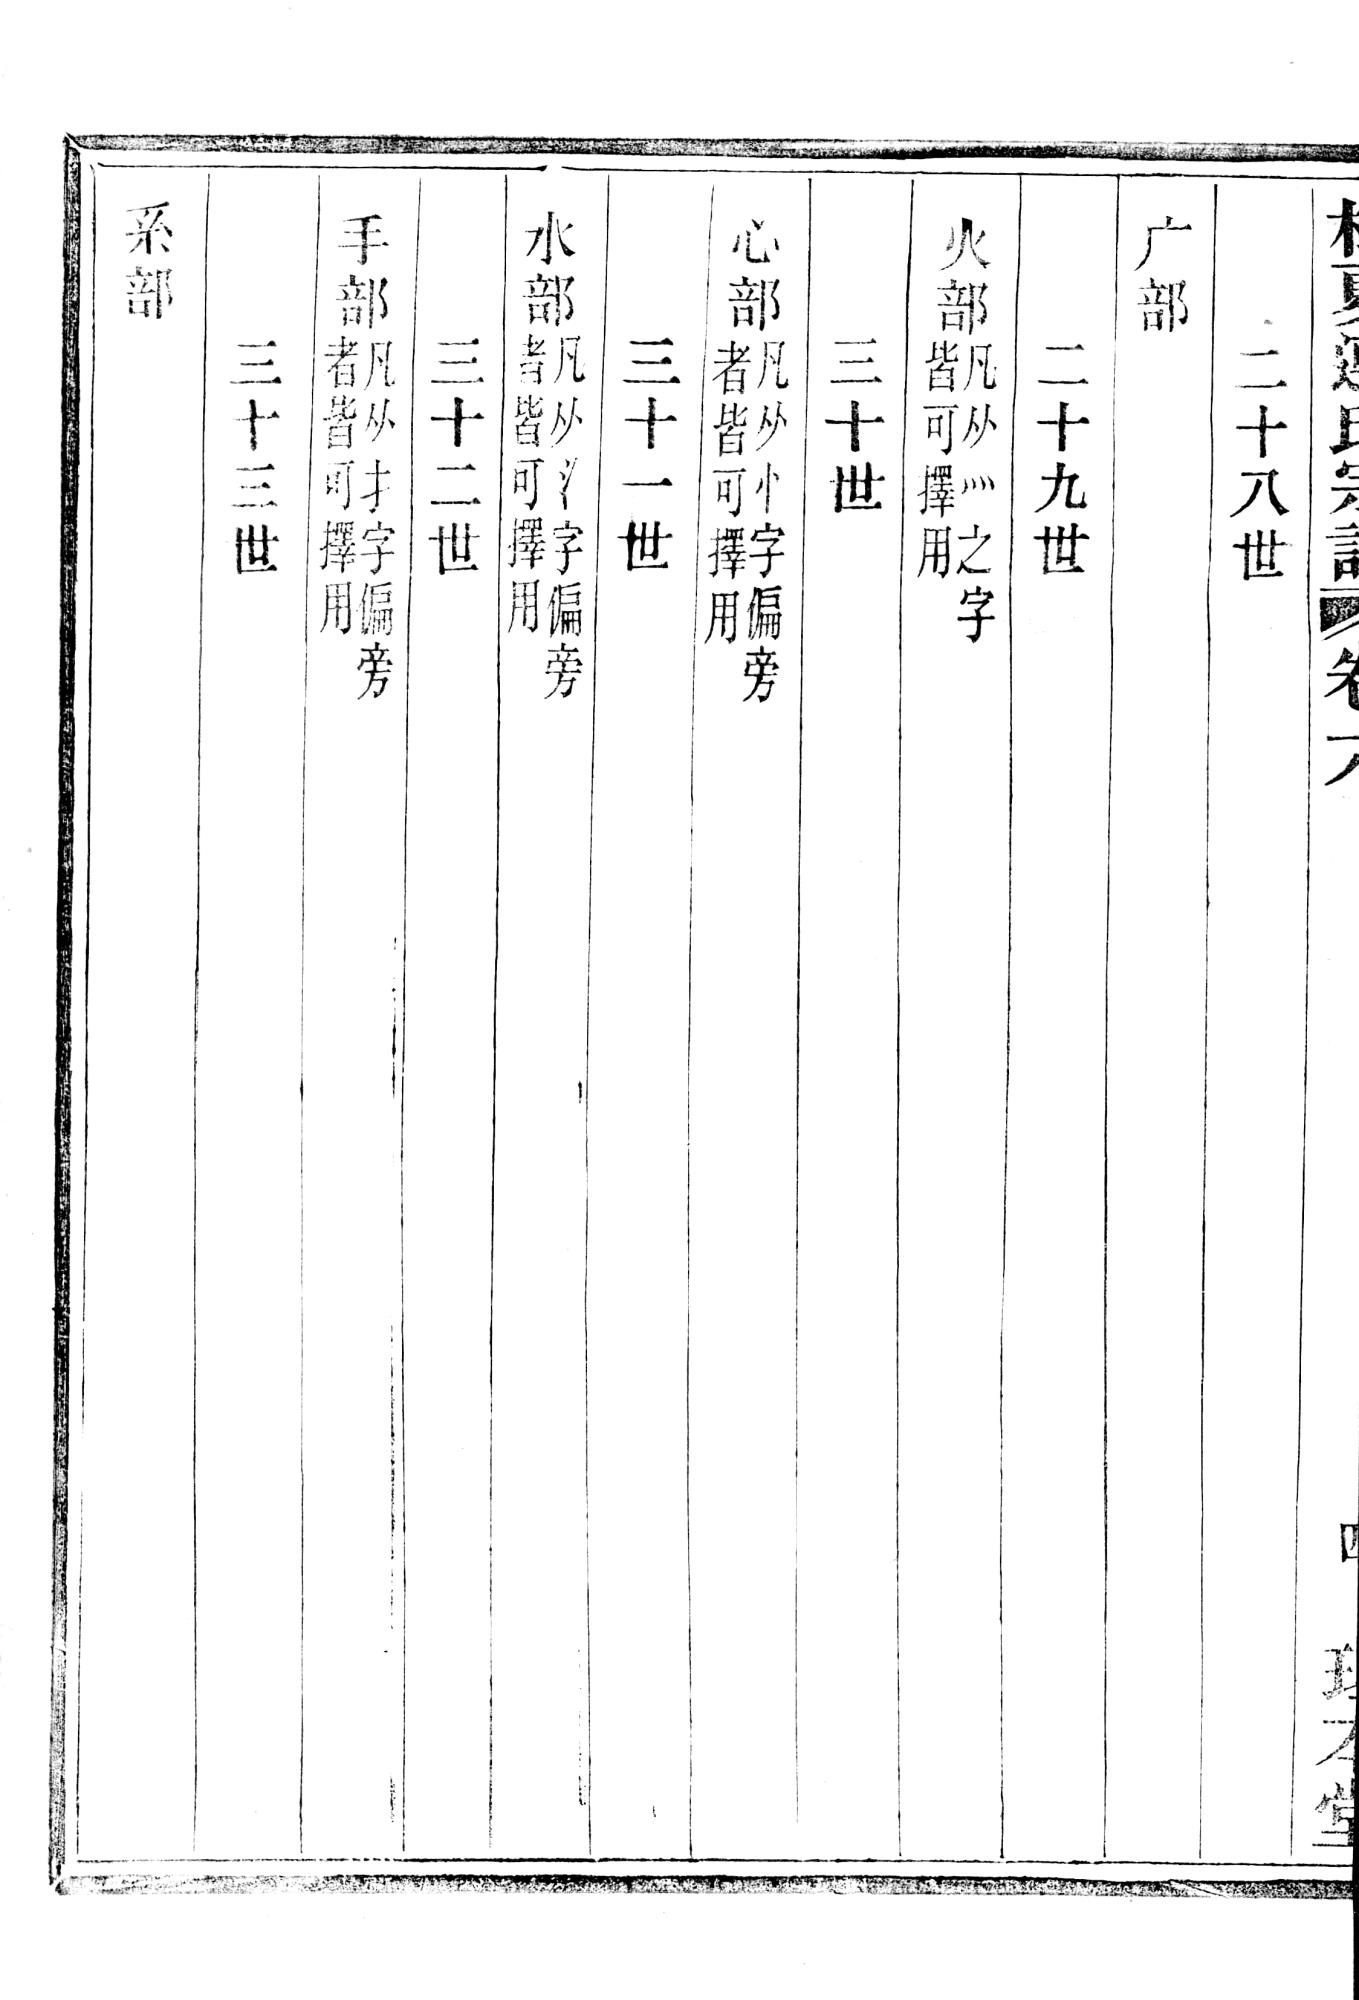 氏宗譜 卷六 四 堂
二十八世
广部
二十九世
火部凡从灬之字
皆可擇用
三十世
心部凡从忄字偏旁
者皆可擇用
三十一世
水部凡从氵字偏旁
者皆可擇用
三十二世
手部凡从扌字偏旁
者皆可擇用
三十三世
系部